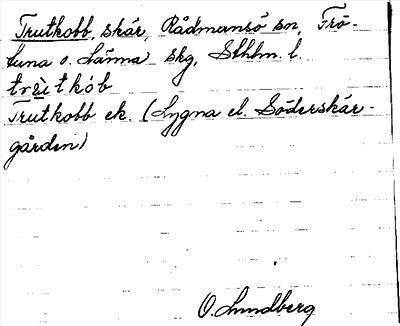 Trutkobb, skär, Rådmansö sn, Frö-
tuna o. Länna skg, Sthlm. l.
trùtkób
Trutkobb ek. (Lygna el. Söderskär-
gården)
O. Lundberg